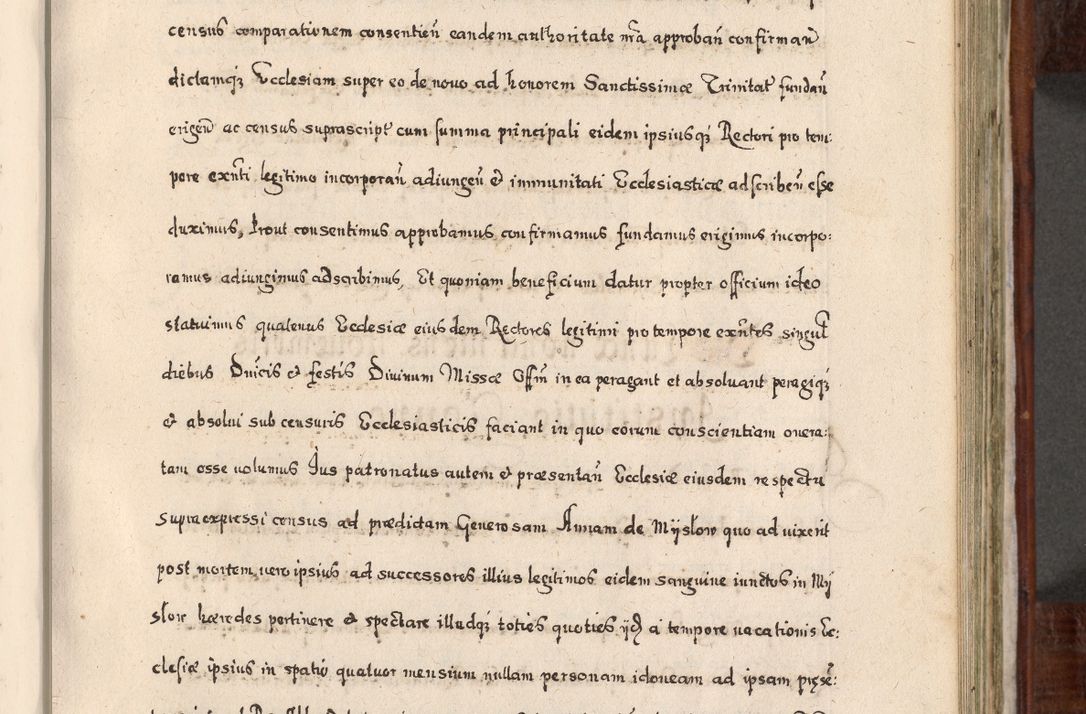 census comparationem consentien̄ eandem authoritate nr̄a approban̄ confirman̄
dictamq3 Ecclesiam super eo de novo ad honorem Sanctissimæ Trinitat fundan̄
erigen̄ ac census suprascript cum summa principali eidem ipsiusq3 Rectori pro tem:
pore exn̄ti legitimo incorporan̄ adiungen̄ & immunitati Ecclesiasticæ adscriben̄ esse
duximus, Prout consentimus approbamus confirmamus fundamus erigimus incorpo:
ramus adiungimus adscribimus, Et quoniam beneficium datur propter officium ideo
statuimus quatenus Ecclesiæ eiusdem Rectores legitimi pro tempore exn̄tes singul
diebus Dn̄icis & festis Divinum Missæ Offm̄ in ea peragant et absoluant peragiq3
& absolui sub censuris Ecclesiasticis faciant in quo eorum conscientiam onera:
tam esse uolumus Jus patronatus autem & præsentan̄ Ecclesiæ eiusdem respectu
supraexpressi census ad prædictam Generosam Annam de Mysłow quo ad uixerit
post mortem vero ipsius ad successores illius legitimos eidem sanguine iunctos in My
słow hæredes pertinere & spectare illudq3 toties quoties ijd a tempore uacationis Ec:
clesiæ ipsius in spatio quatuor mensium nullam personam idoneam ad ipsam pręsē: